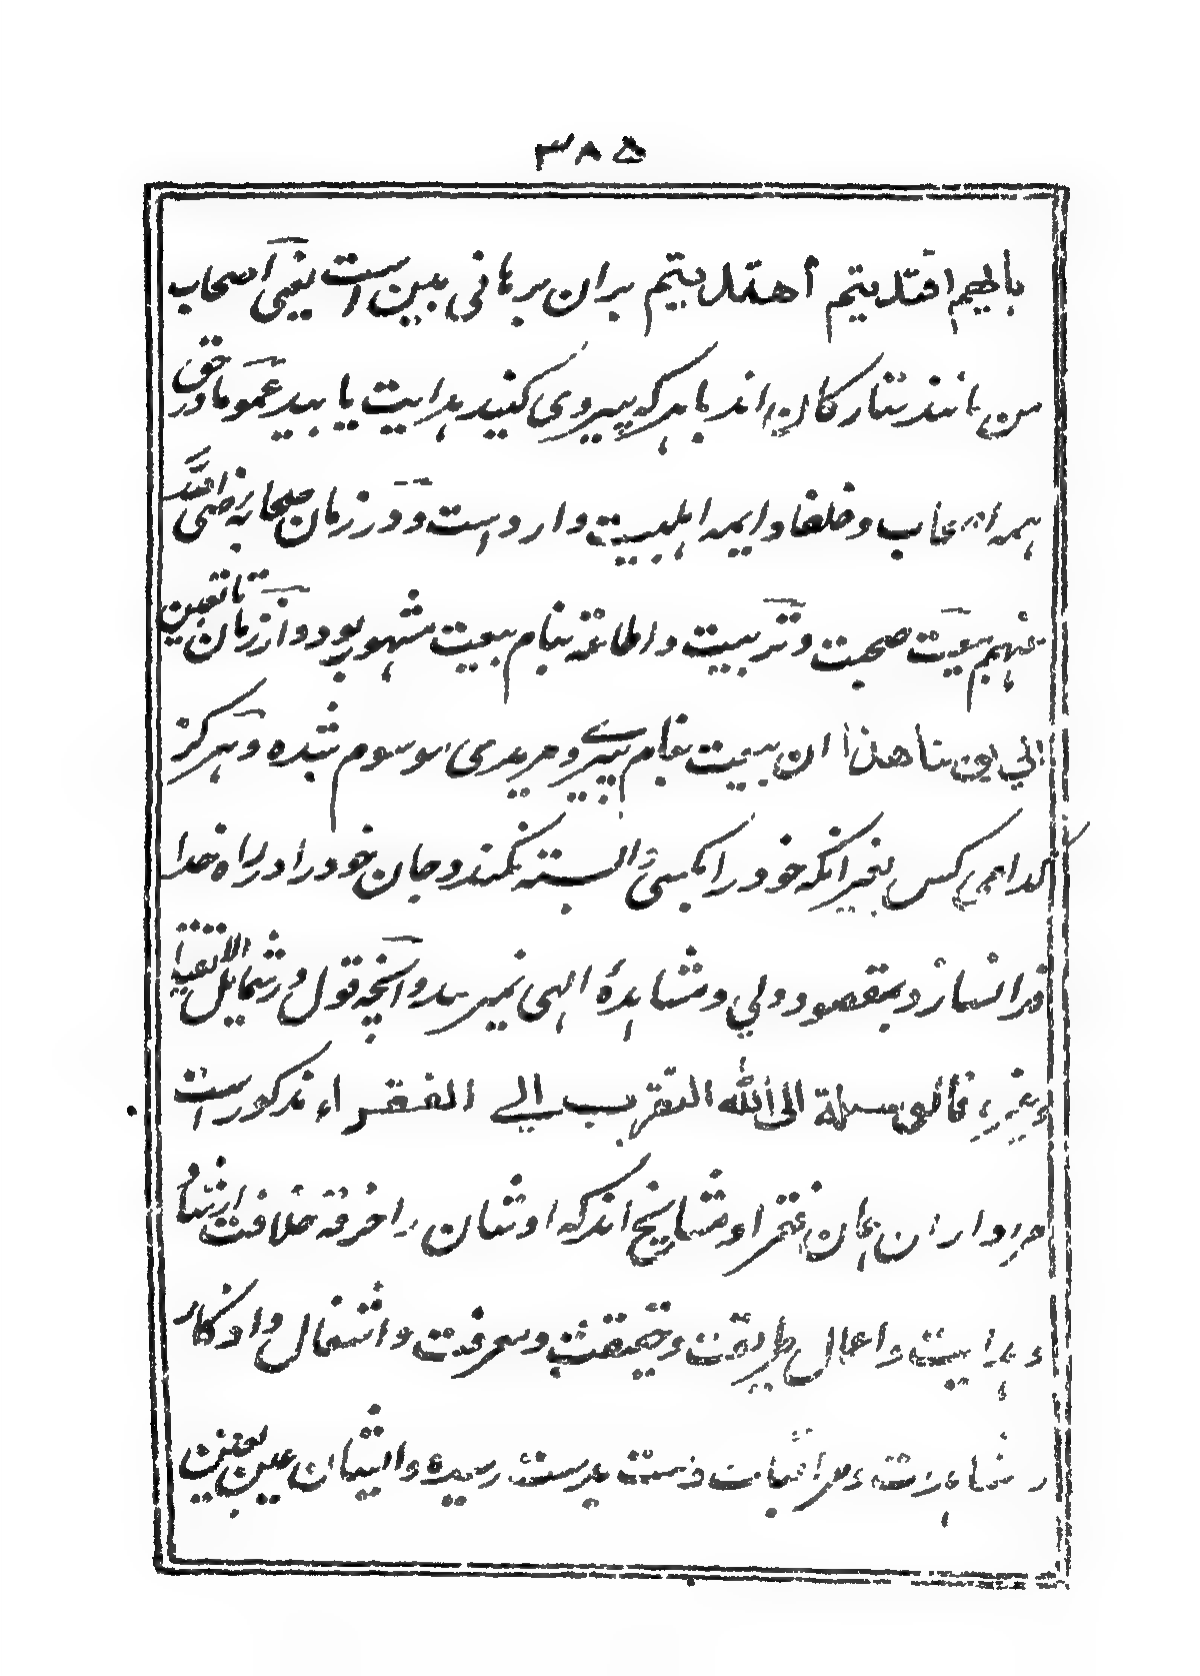 ۳۸۵
بأیهم اقتدیتم أهتدیتم بران برهانی مبین است یعنی اصحاب
من مانند ستارگان اند بهر که پیروی کنید هدایت یابید عموما در حق
همه اصحاب و خلفا و ایمه اهلبیت وارد است و در زمان صحابه رضی الله
عنهم بیعت صحبت و تربیت و اطاعة بنام بیعت مشهور بود و از زمان تابعین
الی یومنا هذا ان بیعت بنام پیری و مریدی موسوم شده و هرگز
کدامی کس بغیر انکه خود را بکسی وابسته نکند و جان خود را در راه خدا
فرا نسازد بمقصود دلی و مشاهدهٔ الهی نمیرسد و انچه قول در شمایل الاتقیا
وغیره فألوسیلة الی الله التقرب الی الفقراء مذکور است
مراد از ان همان فقراء و مشایخ اند که اوشان را خرقه خلافت ارشاد
و هدایت و اعمال طریقت و حقیقت و معرفت و اشغال و اذکار
و مشاهدت و مراقبات دست بدست رسیده و ایشان عین بعین